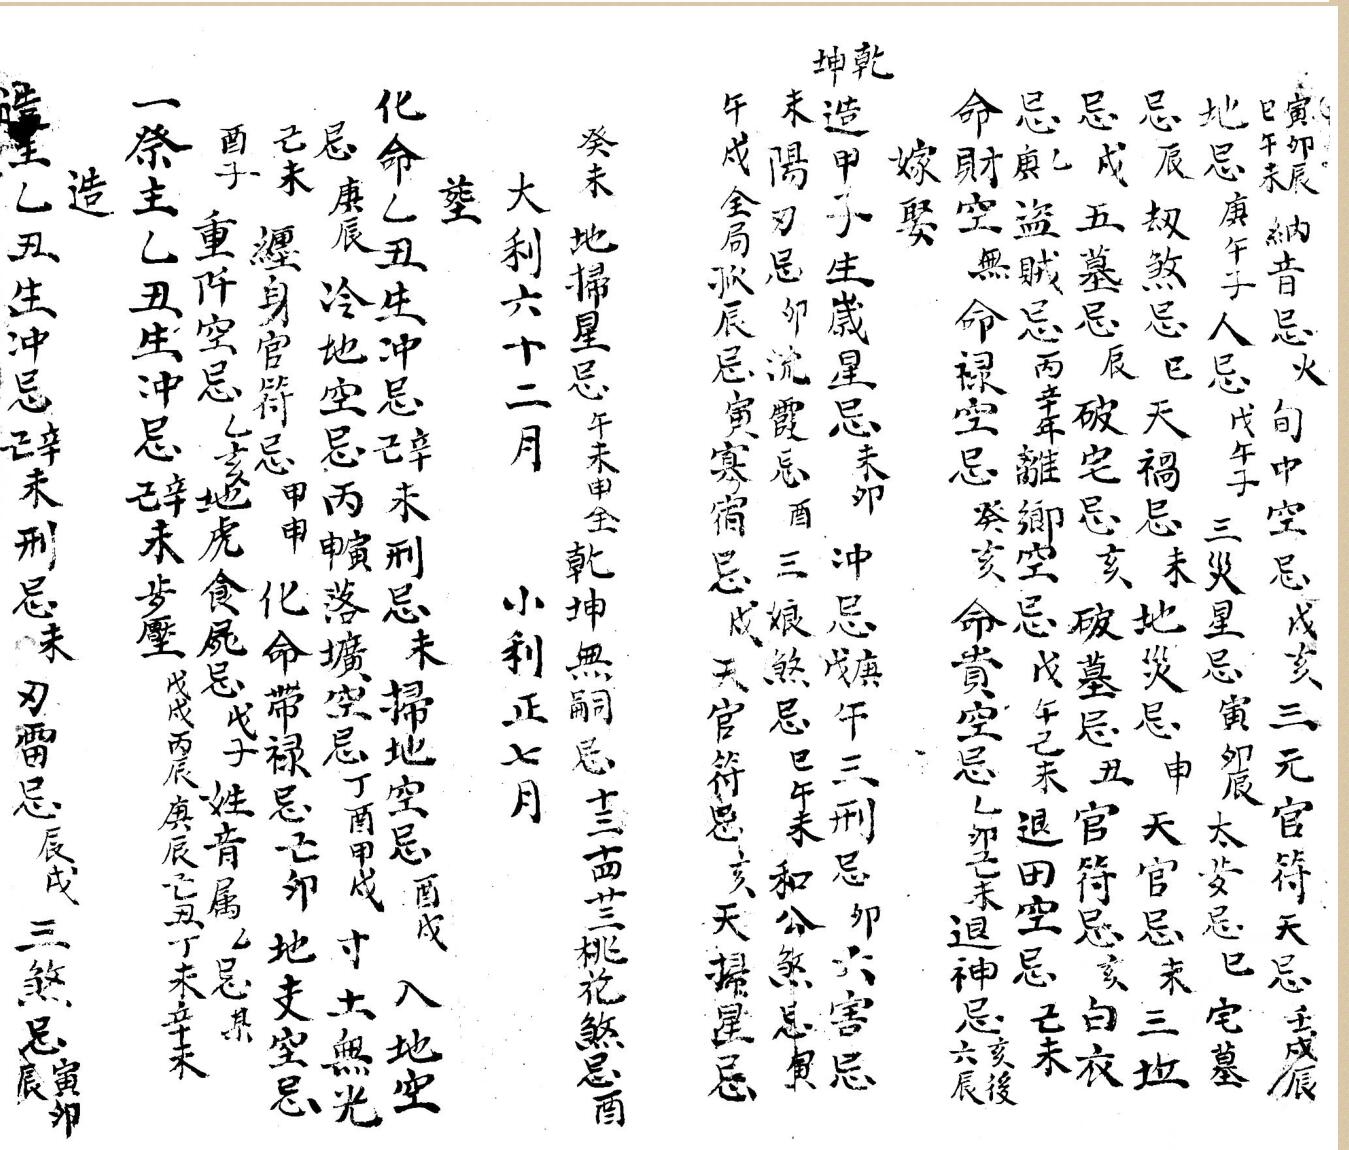 寅卯辰巳午未納音忌火旬中空忌戊亥三元官符天忌壬戌辰
地忌庚午子人忌戊午子三災星忌寅卯辰太忌巳宅墓
忌辰刼煞忌巳天禍忌未地災忌申天官忌未三坵
忌戌五墓忌辰破宅忌亥破墓忌丑官符忌亥白衣
忌庚乙盜賊忌丙辛年離鄉空忌戊午己未退田空忌己未
命財空無命禄空忌癸亥命貴空忌乙卯己未退神忌亥後六辰
嫁娶
乾坤造甲子生歲星忌未卯冲忌庚戊午三刑忌卯六害忌
未陽刃忌卯流霞忌酉三娘煞忌巳午未和公煞忌寅
午戌全局孤辰忌寅寡宿忌戌天官符忌亥天掃星忌
癸未地掃星忌午未申全乾坤無嗣忌十三十四廿三桃花煞忌酉
大利六十二月小利正七月
塟
化命乙丑生冲忌辛己未刑忌未掃地空忌酉戌入地空
忌庚辰冷地空忌丙申寅落壙空忌丁酉甲戌寸土無光
己未纏身官符忌甲申化命帶禄忌己卯地支空忌
酉子重阡空忌乙亥地虎食屍忌戊子姓音属乙忌某
一祭主乙丑生冲忌辛己未步壓戊戌丙辰庚辰己丑丁未辛未
造
造主乙丑生冲忌辛己未刑忌未刃雷忌辰戌三煞忌寅卯辰